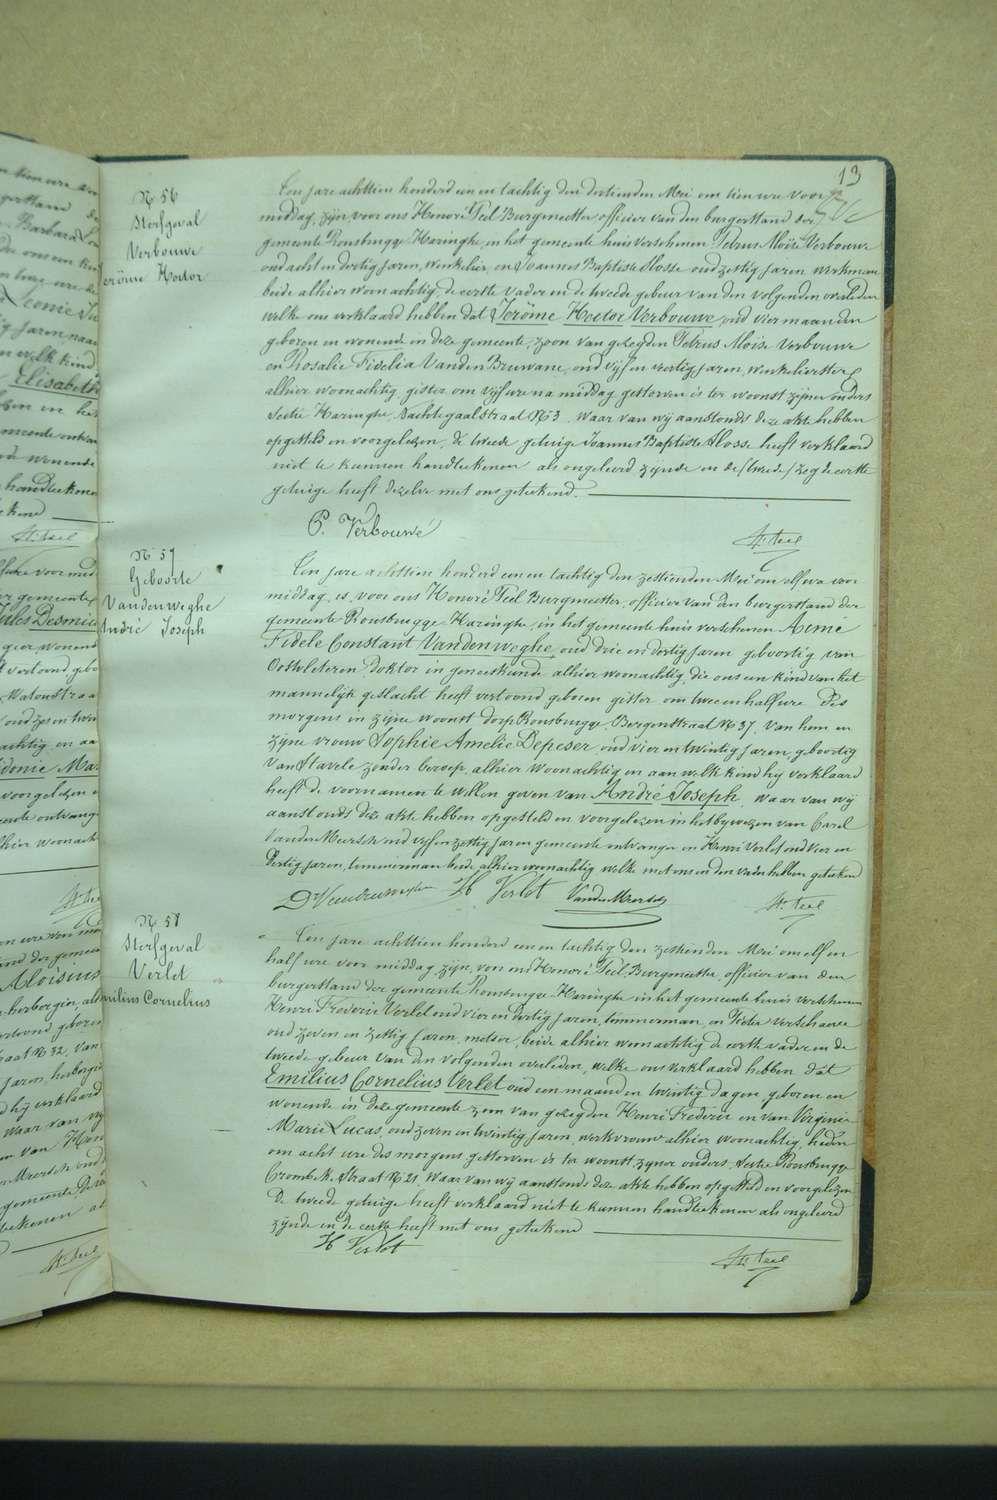 13
N 56
Sterfgeval
Verbouwe
erôme Hector
Een jare achttien honderd een en tachtig den dertienden Mei om tien ure voor
middag, zijn voor ons Honoré Teel Burgmeester, officier van den burgerstand der
gemeente Rousbrugge Haringhe, in het gemeente huis verschenen Petrus Moïse Verbouwe
oud acht en dertig jaren, winkelier, en Joannes Baptiste Closse oud zestig jaren werkman
beide alhier woonachtig, de eerste vader en de tweede gebuur van den volgenden overleden
welke ons verklaard hebben dat Jerôme Hector Verbouwe, oud vier maanden
geboren en wonende in deze gemeente, zoon van gezegden Petrus Moïse Verbouwe
en Rosalie Fidelia Vanden Bruwane, oud vijf en veertig jaren, winkelierster
alhier woonachtig, gister om vijf ure na middag gestorven is ter woonst zijner ouders
sectie Haringhe, Nachtegaalstraat N 3. Waar van wij aanstonds deze akte hebben
opgesteld en voorgelezen, de tweede getuige Joannes Baptiste Closse heeft verklaard
niet te kunnen handteekenen als ongeleerd zijnde en de /tweede/ zeg de eerste
getuige heeft dezelve met ons geteekend.
P. Verbouwe
H. Teel
N 57
Geboorte
Vandenweghe
André Joseph
Een jare achttien honderd een en tachtig den zestienden Mei om elf ure voor
middag, is voor ons Honoré Teel Burgmeester, officier van den burgerstand der
gemeente Rousbrugge Haringhe, in het gemeente huis verschenen Aemé
Fidele Constant Vandenweghe, oud drie en dertig jaren geboortig van
Oostvleteren, doktor in geneeskunde alhier woonachtig, die ons een kind van het
mannelijk geslacht heeft vertoond geboren gister om twee en half ure des
morgens in zijne woonst dorp Rousbrugge, Bergenstraat N 37. Van hem en
zijne vrouw Sophie Amelie Depeser, oud vier en twintig jaren, geboortig
van Stavele zonder beroep, alhier woonachtig en aan welk kind hij verklaard
heeft de voornamen te willen geven van André Joseph. Waar van wij
aanstonds deze akte hebben opgesteld en voorgelezen in het bijwezen van Carel
Vander Meersch oud vijf en zestig jaren gemeente ontvanger en Henri Verlet oud vier en
dertig jaren, timmerman beide alhier woonachtig welke met ons en den vader hebben geteekend
Dr Vandenweghe H Verlet VanderMeersch H. Teel
N 58
Sterfgeval
Verlet
milius Cornelius
Een jare achttien honderd een en tachtig den zestienden Mei om elf en
half ure voor middag, zijn, voor ons Honoré Teel, Burgmeester, officier van den
burgerstand der gemeente Rousbrugge Haringhe in het gemeente huis verschenen
Henri Frederic Verlet oud vier en dertig jaren, timmerman, en Pieter Verschaeve
oud zeven en zestig jaren, metser, beide alhier woonachtig de eerste vader en de
tweede gebuur van den volgenden overleden, welke ons verklaard hebben dat
Emilius Cornelius Verlet oud een maand en twintig dagen geboren en
wonende in deze gemeente zoon van gezegden Henri Frederic en van Virginie
Marie Lucas, oud zeven en twintig jaren, werkvrouw alhier woonachtig, heden
om acht ure des morgens gestorven is ter woonst zijner ouders, sectie Rousbrugge
Crombeek straat N 21, Waar van wij aanstonds deze akte hebben opgesteld en voorgelezen
De tweede getuige heeft verklaard niet te kunnen handteekenen als ongeleerd
zijnde en de eerste heeft met ons geteekend
H Verlet
H. Teel